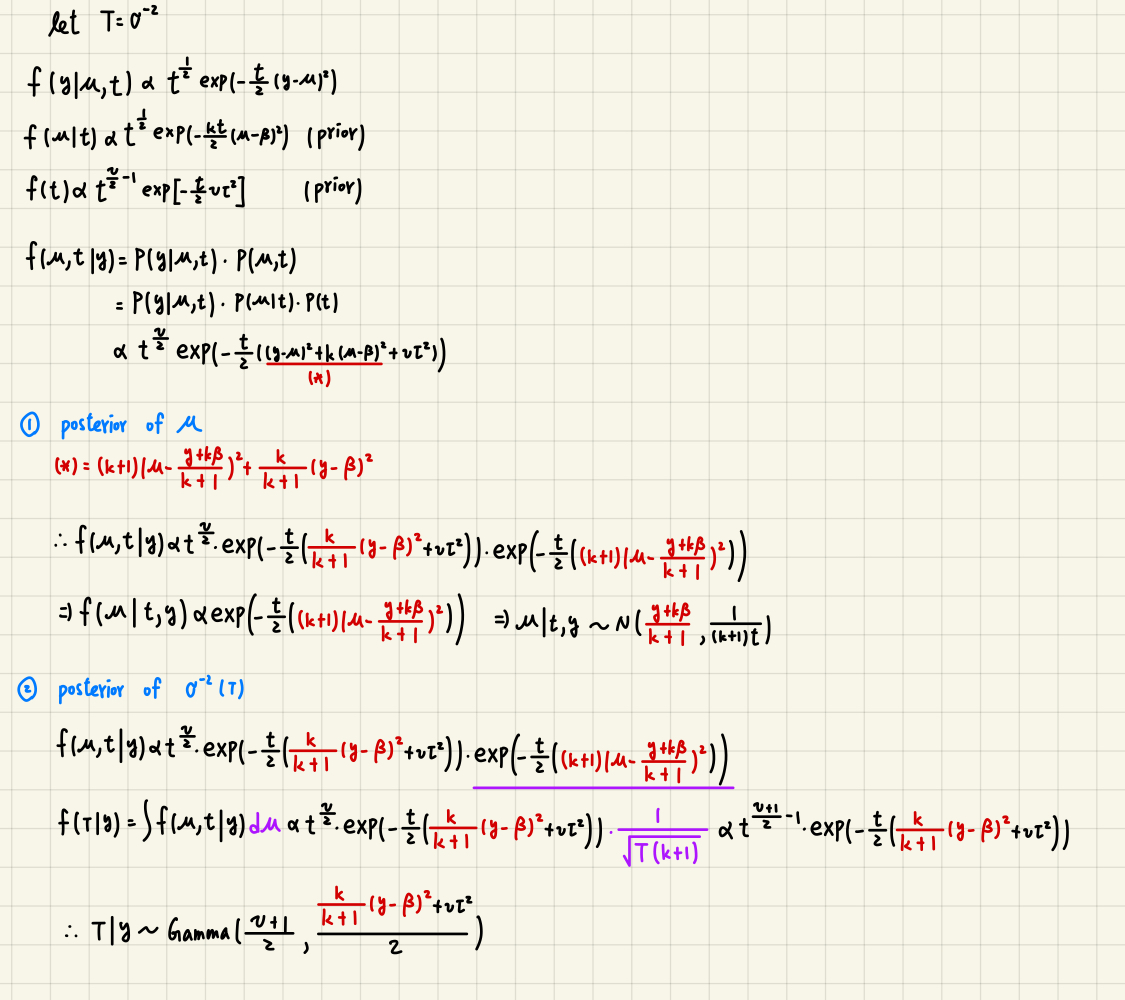 let T = σ⁻²
f(y|μ,t) ∝ t^{1/2} exp(-t/2 (y-μ)²)
f(μ|t) ∝ t^{1/2} exp(-kt/2 (μ-β)²) (prior)
f(t) ∝ t^{ν/2 -1} exp[-t/2 ντ²] (prior)
f(μ,t|y) = P(y|μ,t) · P(μ,t)
= P(y|μ,t) · P(μ|t) · P(t)
∝ t^{ν/2} exp(-t/2 ((y-μ)² + k(μ-β)² + ντ²))
(*)
① posterior of μ
(*) = (k+1)(μ - (y+kβ)/(k+1))² + k/(k+1) (y-β)²
∴ f(μ,t|y) ∝ t^{ν/2} · exp(-t/2 (k/(k+1) (y-β)² + ντ²)) · exp(-t/2 ((k+1)(μ - (y+kβ)/(k+1))²))
⇒ f(μ|t,y) ∝ exp(-t/2 ((k+1)(μ - (y+kβ)/(k+1))²)) ⇒ μ|t,y ~ N((y+kβ)/(k+1), 1/((k+1)t))
② posterior of σ⁻² (T)
f(μ,t|y) ∝ t^{ν/2} · exp(-t/2 (k/(k+1) (y-β)² + ντ²)) · exp(-t/2 ((k+1)(μ - (y+kβ)/(k+1))²))
f(T|y) = ∫ f(μ,t|y) dμ ∝ t^{ν/2} · exp(-t/2 (k/(k+1) (y-β)² + ντ²)) · 1/√(T(k+1)) ∝ t^{(ν+1)/2 -1} · exp(-t/2 (k/(k+1) (y-β)² + ντ²))
∴ T|y ~ Gamma((ν+1)/2, (k/(k+1) (y-β)² + ντ²)/2)